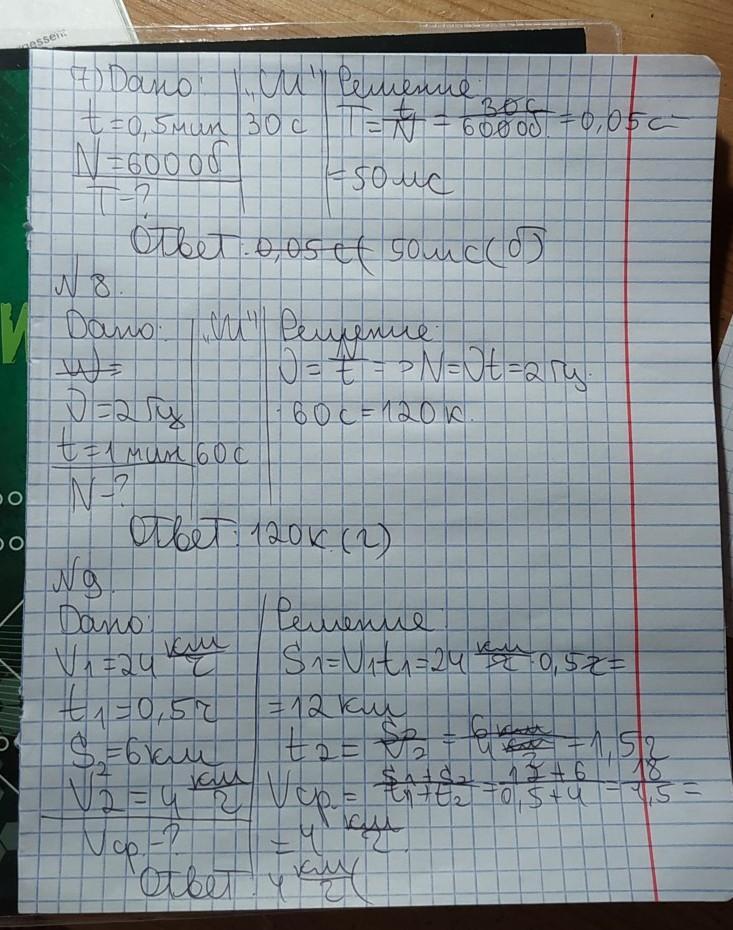 gessen:
7) Дано: "СИ" Решение:
t=0,5мин 30 с T=t/N=30с/600об=0,05с=
N=600об =50мс
T-?
Ответ: 0,05с( 50мс(б)
N 8.
Дано: "СИ" Решение:
ν=N/t=>N=νt=2Гц.
ν=2Гц ·60с=120 к.
t=1мин 60с
N-?
Ответ: 120к. (г)
N9.
Дано: Решение:
V1=24 км/ч S1=V1t1=24 км/ч·0,5ч=
t1=0,5ч =12 км
S2=6км t2=S2/V2=6км/4км/ч=1,5ч
V2=4 км/ч Vср.=S1+S2/t1+t2=12+6/0,5+4=18/4,5=
Vср.-? =4 км/ч.
Ответ: 4 км/ч(